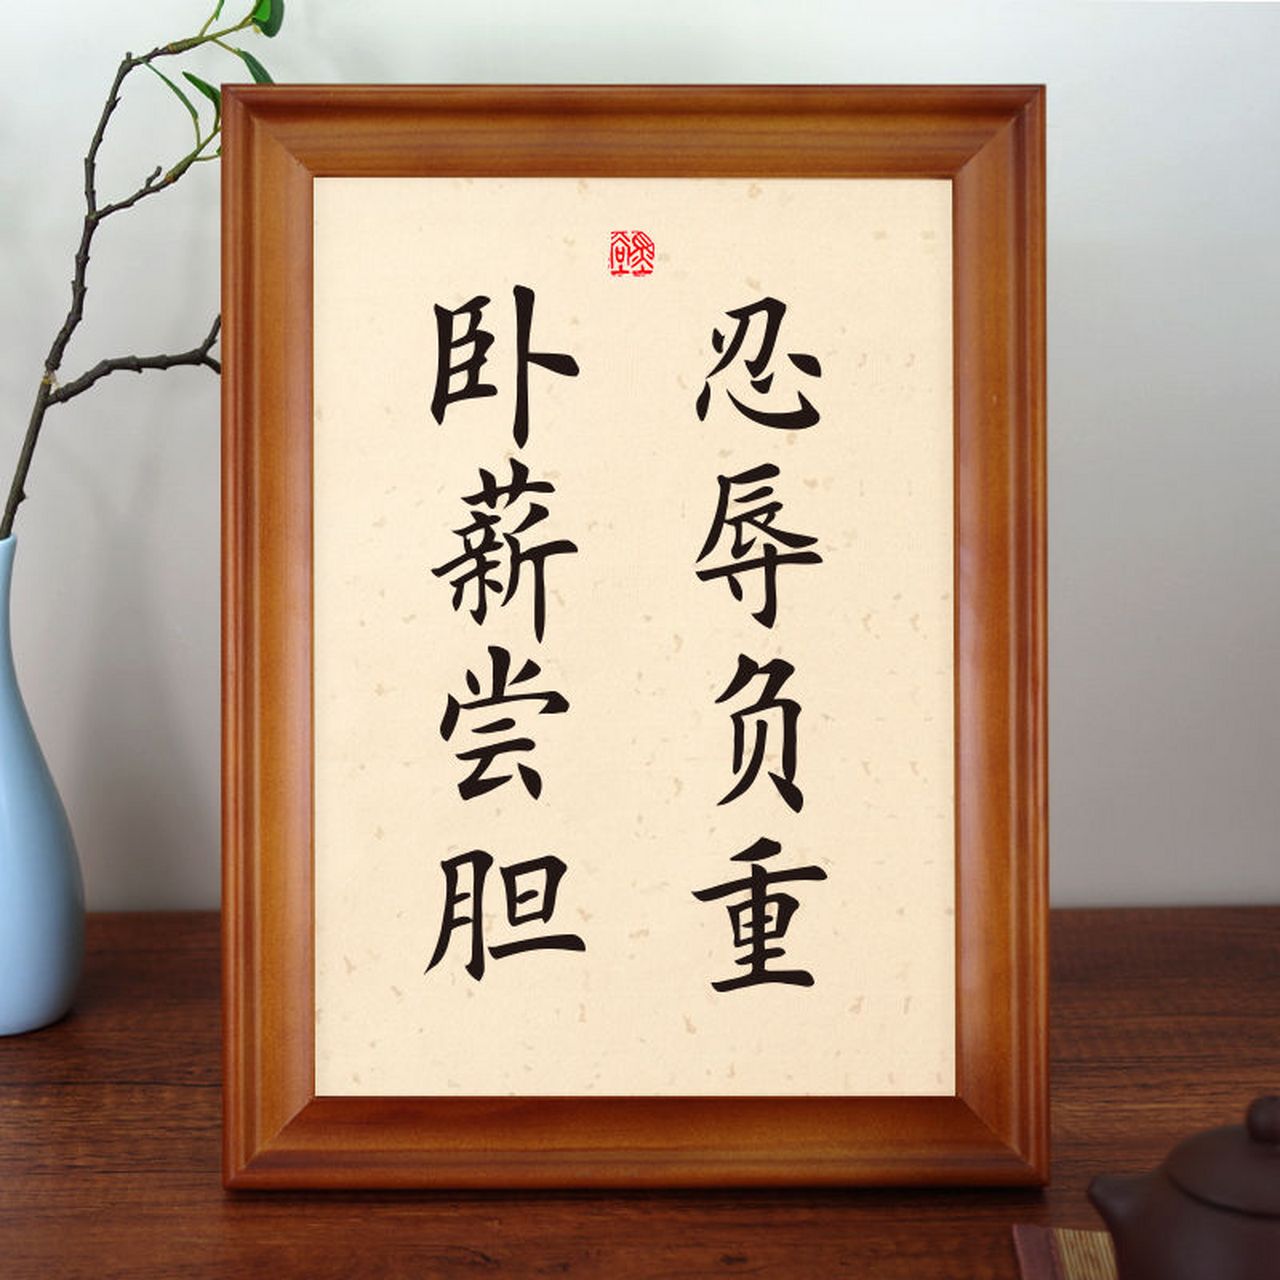 忍辱负重
卧薪尝胆